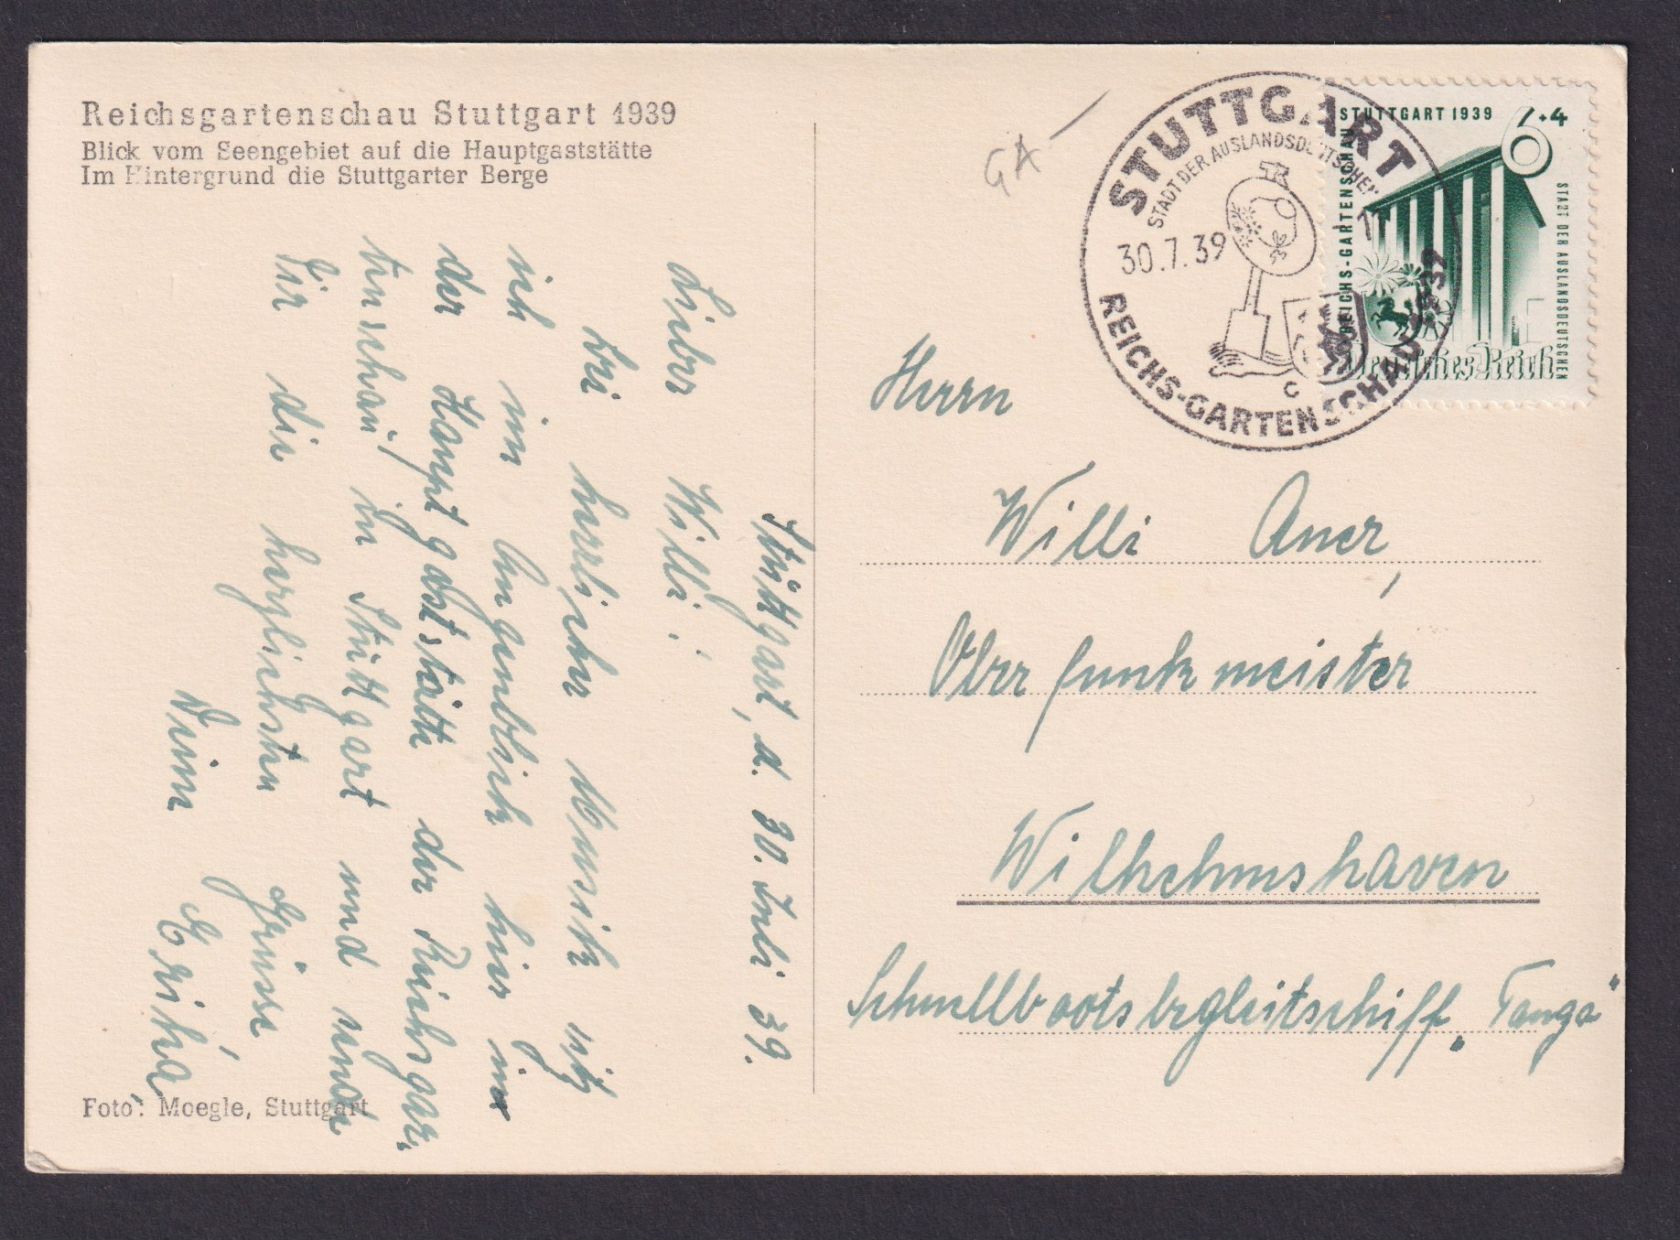 Reichsgartenschau Stuttgart 1939
Blick vom Seengebiet auf die Hauptgaststätte
Im Hintergrund die Stuttgarter Berge
Stuttgart, d. 30. Juli 39.
Lieber Willi!
Bei herrlicher Musik sitz
ich im Augenblick hier in
der Hauptgaststätte der Reichsgar-
tenschau in Stuttgart und sende
Dir die herzlichsten Grüsse,
Deine Erika,
Foto: Moegle, Stuttgart
GA-
STUTTGART
STADT DER AUSLANDSDEUTSCHEN
30.7.39
c
REICHS-GARTENSCHAU 1939
STUTTGART 1939
6+4
REICHS-GARTENSCHAU
STADT DER AUSLANDSDEUTSCHEN
Deutsches Reich
Herrn
Willi Auer,
Oberfunkmeister
Wilhelmshaven
Schnellbootsbegleitschiff „Tanga"